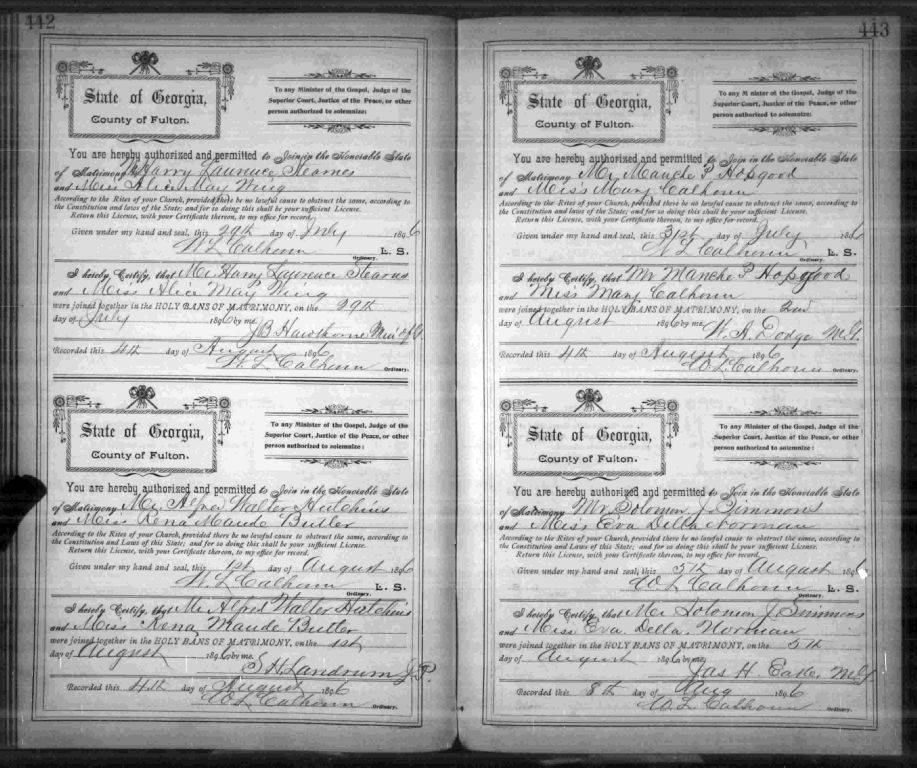 442
State of Georgia,
County of Fulton.
To any Minister of the Gospel, Judge of the
Superior Court, Justice of the Peace, or other
person authorized to solemnize:
You are hereby authorized and permitted to Join in the Honorable State
of Matrimony Harry Laurence Stearnes
and Miss Alice May Wing
According to the Rites of your Church, provided there be no lawful cause to obstruct the same, according to
the Constitution and laws of this State; and for so doing this shall be your sufficient License.
Return this License, with your Certificate thereon, to my office for record.
Given under my hand and seal, this 29th day of July 1896
W. L. Calhoun L. S.
Ordinary.
I hereby Certify, that Mr Harry Laurence Stearns
and Miss Alice May Wing
were joined together in the HOLY BANS OF MATRIMONY, on the 29th
day of July 1896 by me,
J B Hawthorne Min of G.
Recorded this 4th day of August 1896
W. L. Calhoun Ordinary.
State of Georgia,
County of Fulton.
To any Minister of the Gospel, Judge of the
Superior Court, Justice of the Peace, or other
person authorized to solemnize:
You are hereby authorized and permitted to Join in the Honorable State
of Matrimony Mr Alfred Walter Hutchins
and Miss Rena Maude Butler
According to the Rites of your Church, provided there be no lawful cause to obstruct the same, according to
the Constitution and Laws of this State; and for so doing this shall be your sufficient License.
Return this License, with your Certificate thereon, to my office for record.
Given under my hand and seal, this 1st day of August 1896
W. L. Calhoun L. S.
Ordinary.
I hereby Certify, that Mr Alfred Walter Hutchins
and Miss Rena Maude Butler
were joined together in the HOLY BANS OF MATRIMONY, on the 1st
day of August 1896 by me,
S H Landrum J. P.
Recorded this 4th day of August 1896
W. L. Calhoun Ordinary.
443
State of Georgia,
County of Fulton.
To any Minister of the Gospel, Judge of the
Superior Court, Justice of the Peace, or other
person authorized to solemnize:
You are hereby authorized and permitted to Join in the Honorable State
of Matrimony Mr Manche P Hopgood
and Miss Mary Calhoun
According to the Rites of your Church, provided there be no lawful cause to obstruct the same, according to
the Constitution and laws of this State; and for so doing this shall be your sufficient License.
Return this License, with your Certificate thereon, to my office for record.
Given under my hand and seal, this 31st day of July 1896
W L Calhoun L. S.
Ordinary.
I hereby Certify, that Mr Manche P Hopgood
and Miss Mary Calhoun
were joined together in the HOLY BANS OF MATRIMONY, on the 2nd
day of August 1896 by me,
W. A. Dodge M. G.
Recorded this 4th day of August 1896
W. L. Calhoun Ordinary.
State of Georgia,
County of Fulton.
To any Minister of the Gospel, Judge of the
Superior Court, Justice of the Peace, or other
person authorized to solemnize:
You are hereby authorized and permitted to Join in the Honorable State
of Matrimony Mr Solomon J. Simmons
and Miss Eva Della Norman
According to the Rites of your Church, provided there be no lawful cause to obstruct the same, according to
the Constitution and Laws of this State; and for so doing this shall be your sufficient License.
Return this License, with your Certificate thereon, to my office for record.
Given under my hand and seal, this 5th day of August 1896
W. L. Calhoun L. S.
Ordinary.
I hereby Certify, that Mr Solomon J Simmons
and Miss Eva Della Norman
were joined together in the HOLY BANS OF MATRIMONY, on the 5th
day of August 1896 by me,
Jas H. M. G.
Recorded this 8th day of Aug 1896
W. L. Calhoun Ordinary.